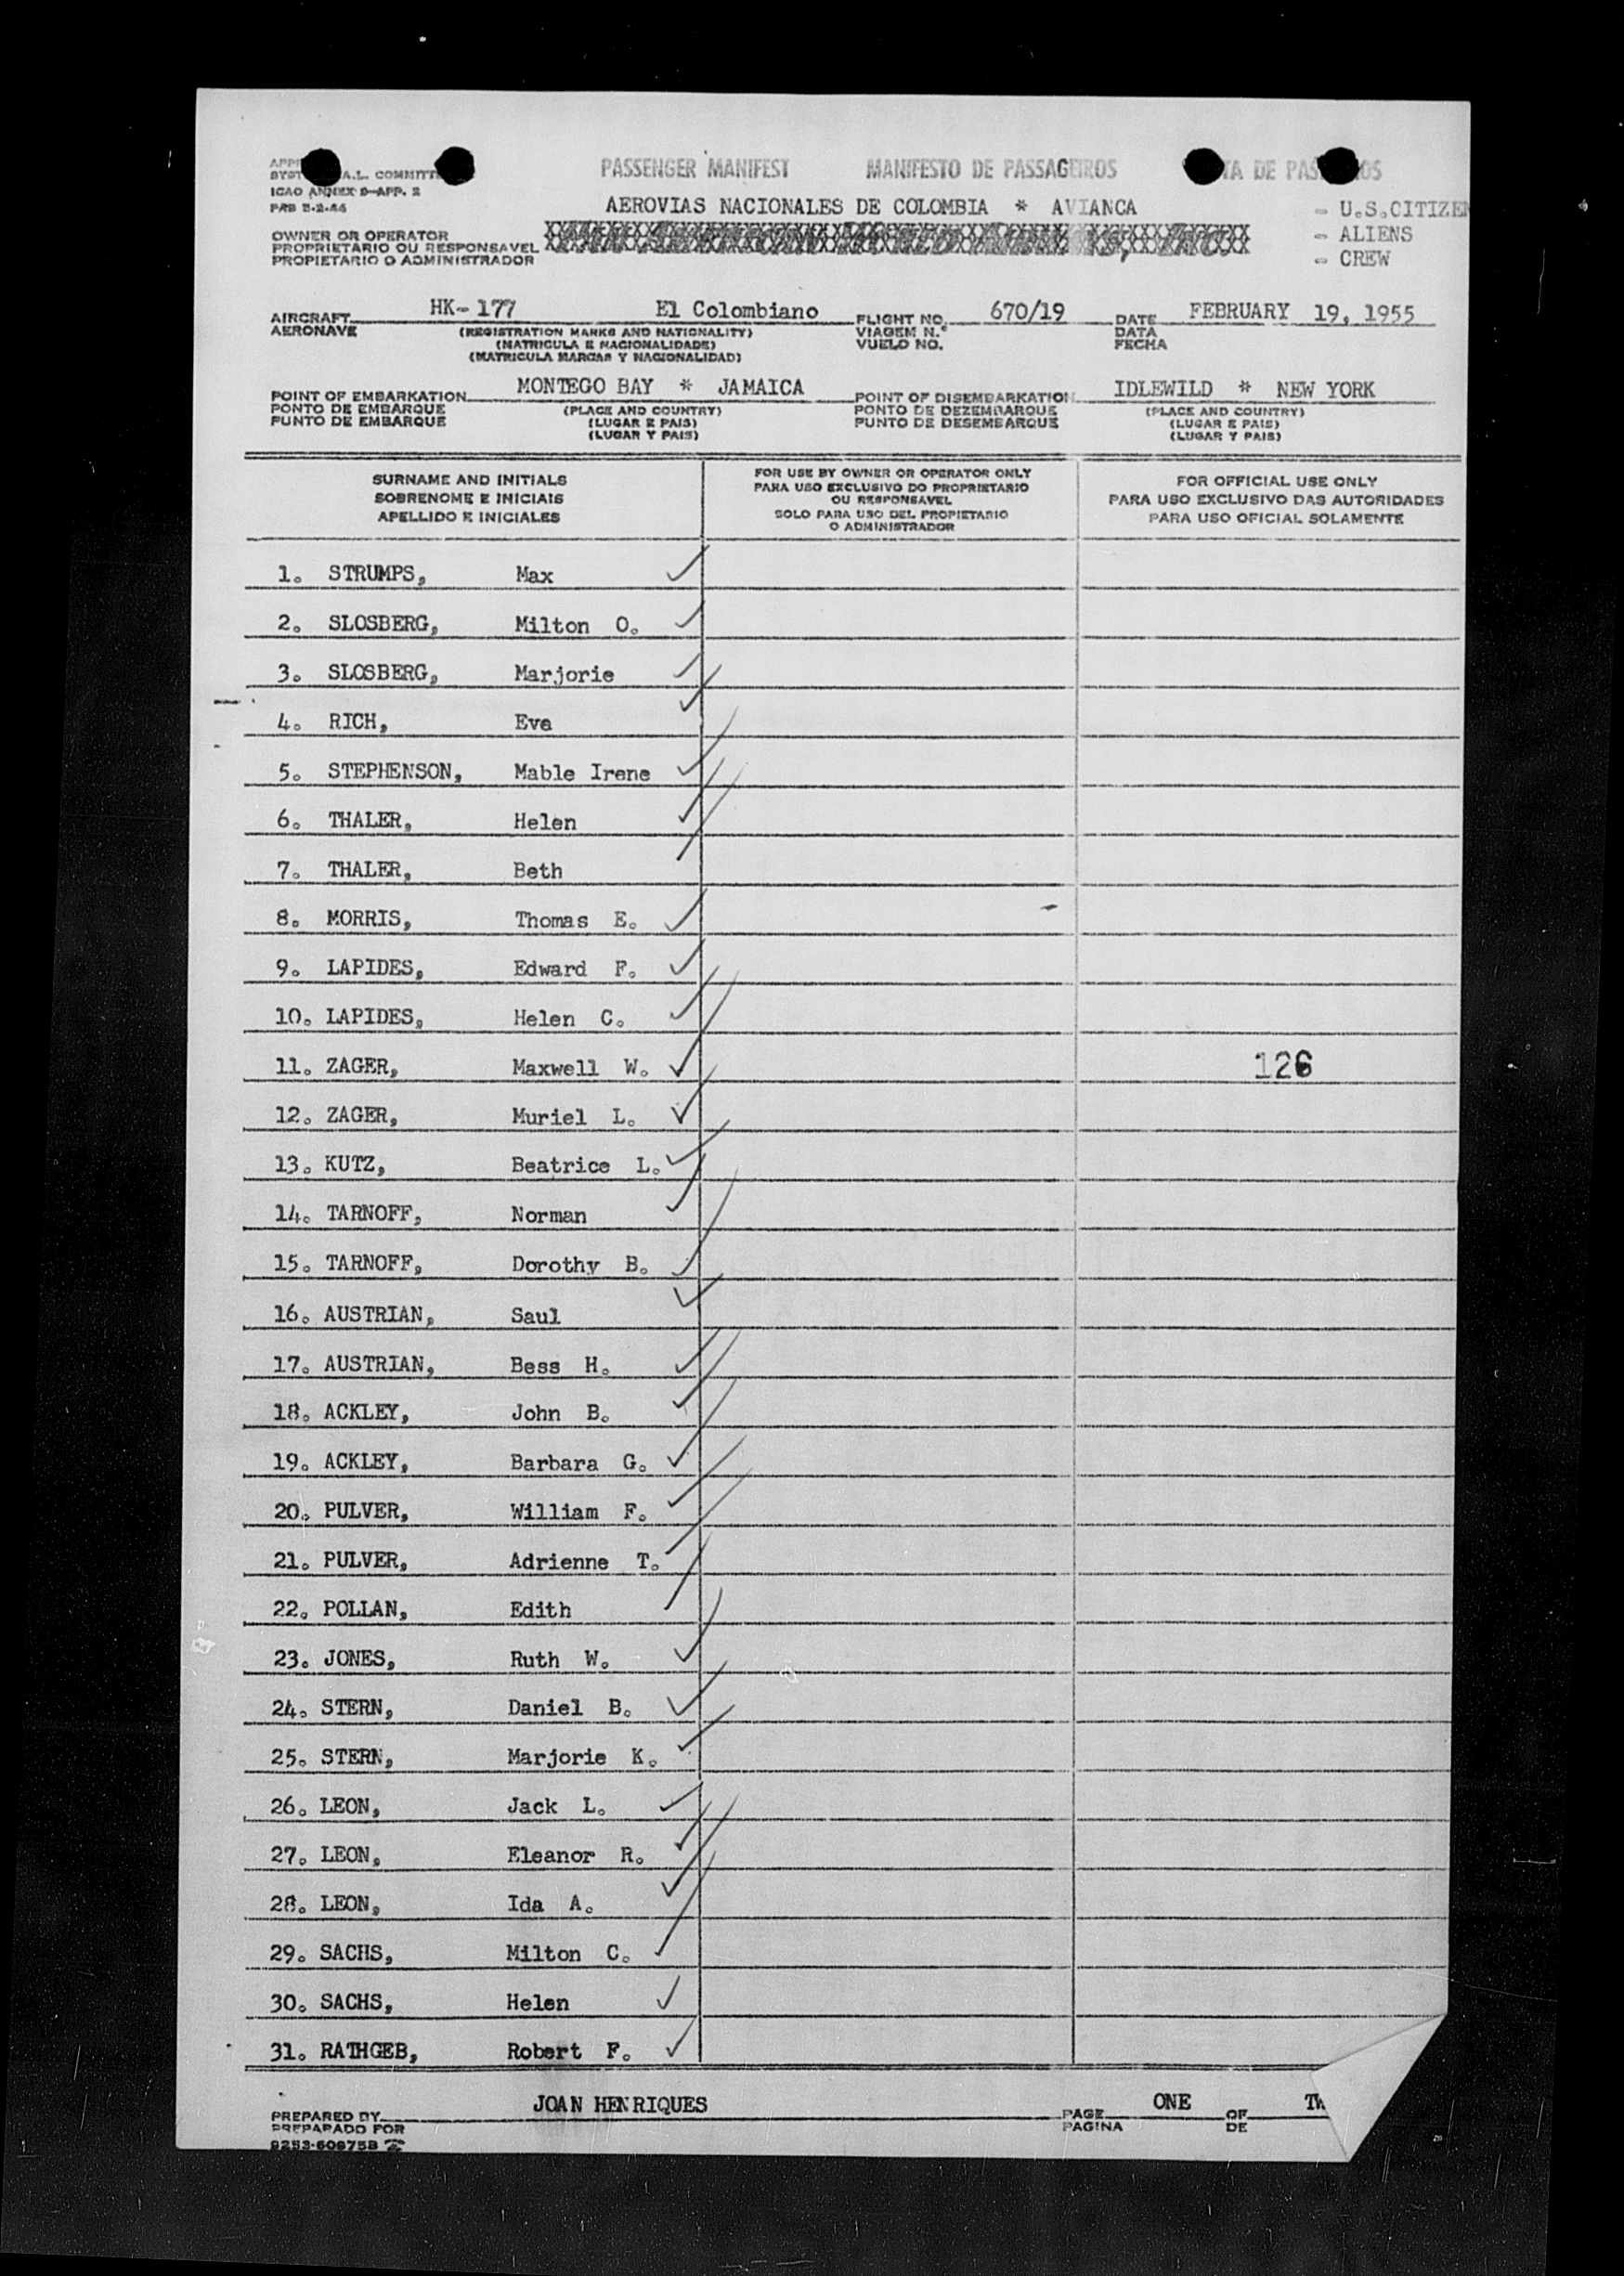 PASSENGER MANIFEST MANIFESTO DE PASSAGEIROS TA DE PAS OS
A.L. COMMITT
ICAO ANNEX 9-APP. 2
PAB 5-2-46
AEROVIAS NACIONALES DE COLOMBIA * AVIANCA
- U.S.CITIZEN
- ALIENS
- CREW
OWNER OR OPERATOR
PROPRIETARIO OU RESPONSAVEL
PROPIETARIO O ADMINISTRADOR
AIRCRAFT HK-177 El Colombiano FLIGHT NO. 670/19 DATE FEBRUARY 19, 1955
AERONAVE (REGISTRATION MARKS AND NATIONALITY) VIAGEM N.º DATA
(MATRICULA E NACIONALIDADE) VUELO NO. FECHA
(MATRICULA MARCAS Y NACIONALIDAD)
POINT OF EMBARKATION MONTEGO BAY * JAMAICA POINT OF DISEMBARKATION IDLEWILD * NEW YORK
PONTO DE EMBARQUE (PLACE AND COUNTRY) PONTO DE DEZEMBARQUE (PLACE AND COUNTRY)
PUNTO DE EMBARQUE (LUGAR E PAIS) PUNTO DE DESEMBARQUE (LUGAR E PAIS)
(LUGAR Y PAIS) (LUGAR Y PAIS)
SURNAME AND INITIALS
SOBRENOME E INICIAIS
APELLIDO E INICIALES
FOR USE BY OWNER OR OPERATOR ONLY
PARA USO EXCLUSIVO DO PROPRIETARIO
OU RESPONSAVEL
SOLO PARA USO DEL PROPIETARIO
O ADMINISTRADOR
FOR OFFICIAL USE ONLY
PARA USO EXCLUSIVO DAS AUTORIDADES
PARA USO OFICIAL SOLAMENTE
1. STRUMPS, Max
2. SLOSBERG, Milton O.
3. SLOSBERG, Marjorie
4. RICH, Eva
5. STEPHENSON, Mable Irene
6. THALER, Helen
7. THALER, Beth
8. MORRIS, Thomas E.
9. LAPIDES, Edward F.
10. LAPIDES, Helen C.
11. ZAGER, Maxwell W. 126
12. ZAGER, Muriel L.
13. KUTZ, Beatrice L.
14. TARNOFF, Norman
15. TARNOFF, Dorothy B.
16. AUSTRIAN, Saul
17. AUSTRIAN, Bess H.
18. ACKLEY, John B.
19. ACKLEY, Barbara G.
20. PULVER, William F.
21. PULVER, Adrienne T.
22. POLLAN, Edith
23. JONES, Ruth W.
24. STERN, Daniel B.
25. STERN, Marjorie K.
26. LEON, Jack L.
27. LEON, Eleanor R.
28. LEON, Ida A.
29. SACHS, Milton C.
30. SACHS, Helen
31. RATHGEB, Robert F.
PREPARED BY JOAN HENRIQUES PAGE ONE OF TW
PREPARADO POR PAGINA DE
9253-60675B